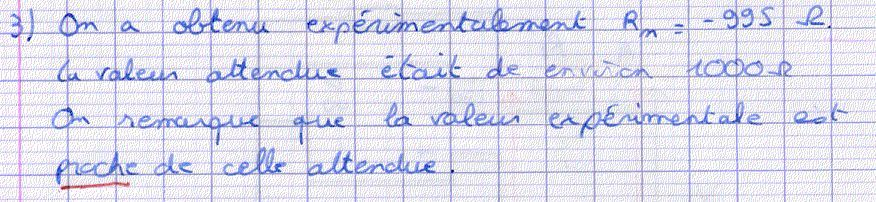 3) On a obtenu expérimentalement Rn = -995 Ω.
La valeur attendue était de environ 1000 Ω
On remarque que la valeur expérimentale est
proche de celle attendue.